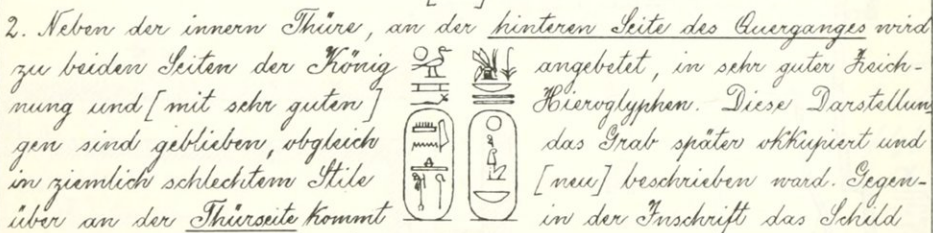 2. Neben der innern Thüre, an der hinteren Seite des Querganges wird
zu beiden Seiten der König 𓇳𓅭 angebetet, in sehr guter Zeich-
nung und [mit sehr guten] Hieroglyphen. Diese Darstellun
gen sind geblieben, obgleich das Grab später okkupiert und
in ziemlich schlechtem Stile [neu] beschrieben ward. Gegen-
über an der Thürseite kommt in der Inschrift das Schild